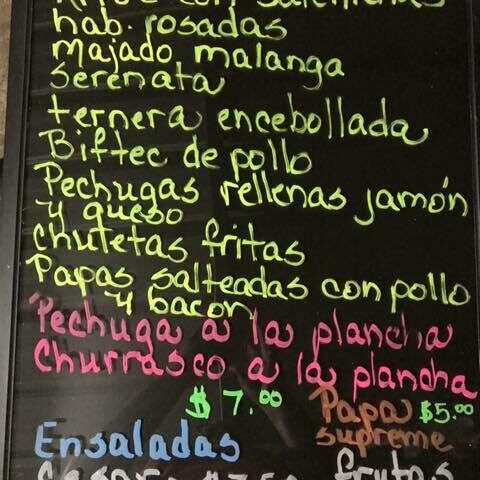 con salchichas
hab. rosadas
majado malanga
serenata
ternera encebollada
Biftec de pollo
Pechugas rellenas jamón
y queso
chuletas fritas
Papas salteadas con pollo
y bacon
Pechuga a la plancha
Churrasco a la plancha
$7.00 Papa $5.00
supreme
Ensaladas
frutas